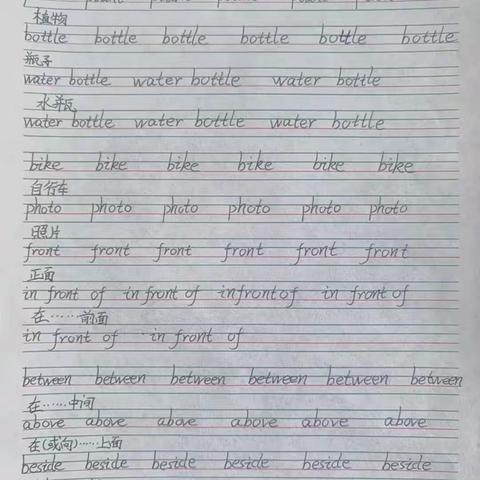 植物
bottle bottle bottle bottle bottle bottle
瓶子
water bottle water bottle water bottle
水瓶
water bottle water bottle water bottle
bike bike bike bike bike bike
自行车
photo photo photo photo photo photo
照片
front front front front front front
正面
in front of in front of in front of in front of
在……前面
in front of in front of
between between between between between between
在……中间
above above above above above above
在(或向)……上面
beside beside beside beside beside beside